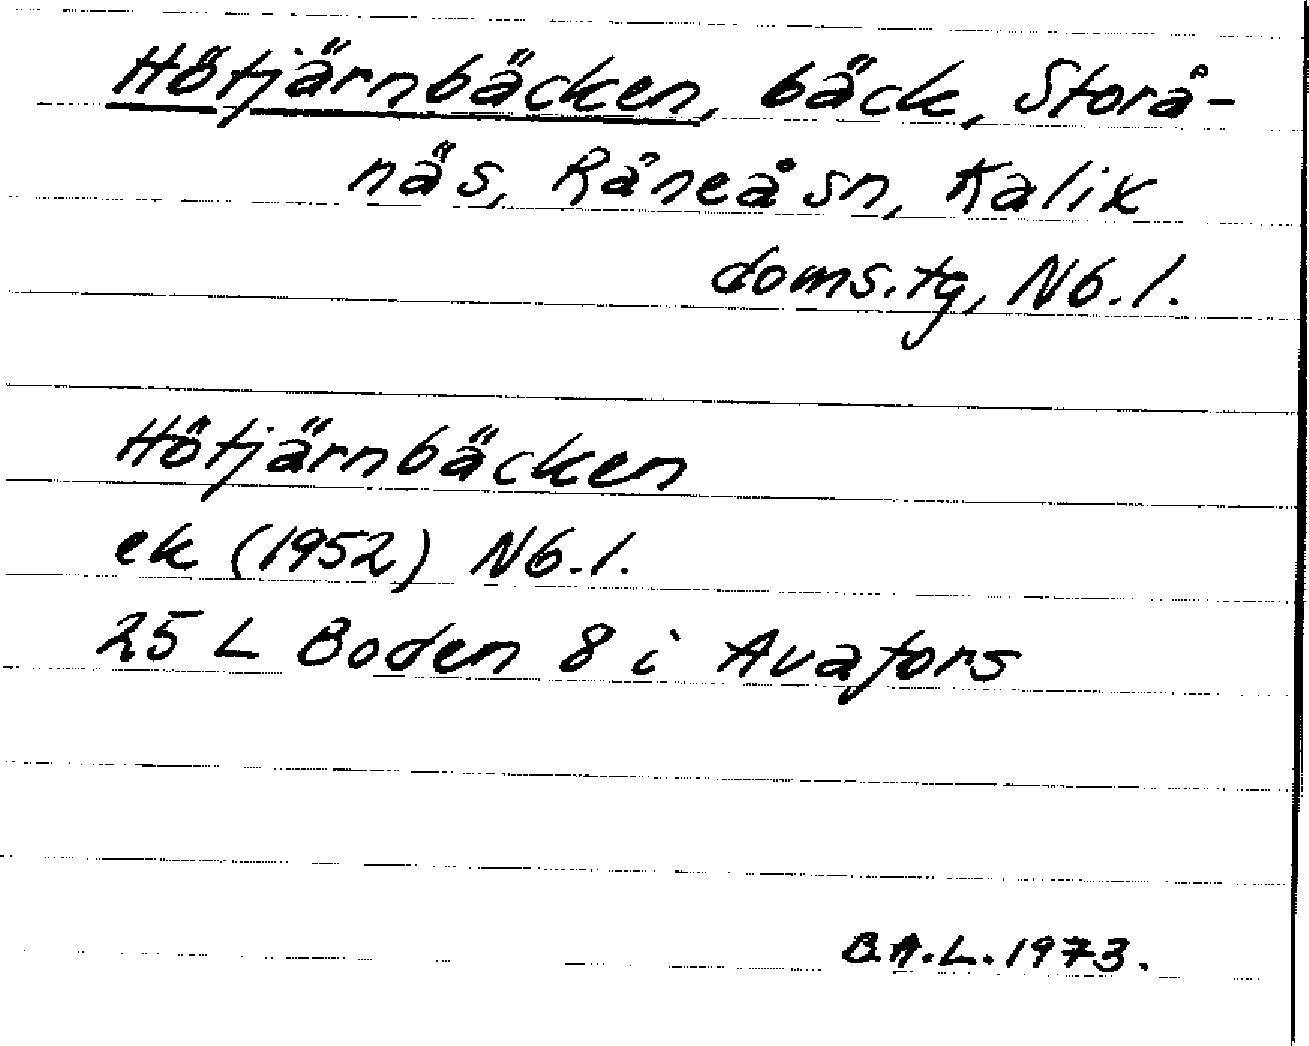 Hötjärnbäcken, bäck, Storå-
näs, Råneå sn, Kalix
doms.tg, Nb. l.
Hötjärnbäcken
ek (1952) Nb. l.
25 L Boden 8 i Avafors
B.A.L. 1973.